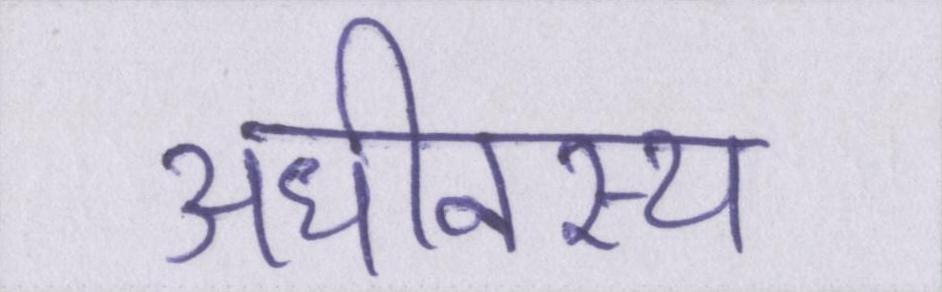 अधीनस्य